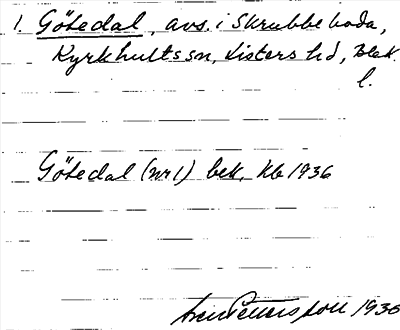 1. Götedal, avs. i Skrubbeboda,
Kyrkhults sn, Listers hd, Blek.
l.
Götedal (nr 1) bek. kb 1936
Pettersson 1936